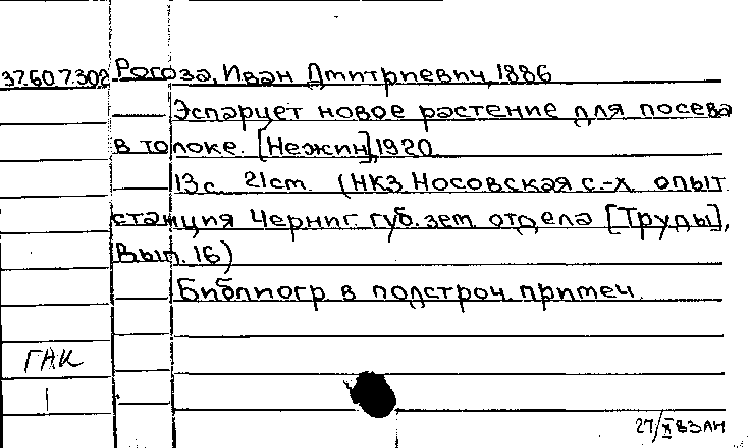 37.60.7.302 Рогоза, Иван Дмитриевич, 1886
Эспарцет новое растение для посева
в толоке. [Нежин], 1920
13 с. 21 cm. (НКЗ Носовская с.-х. опыт.
станция Черниг. губ. зем. отдела [Труды],
вып. 16)
Библиогр в подстроч. примеч.
ГАК
27/X ВЗАН